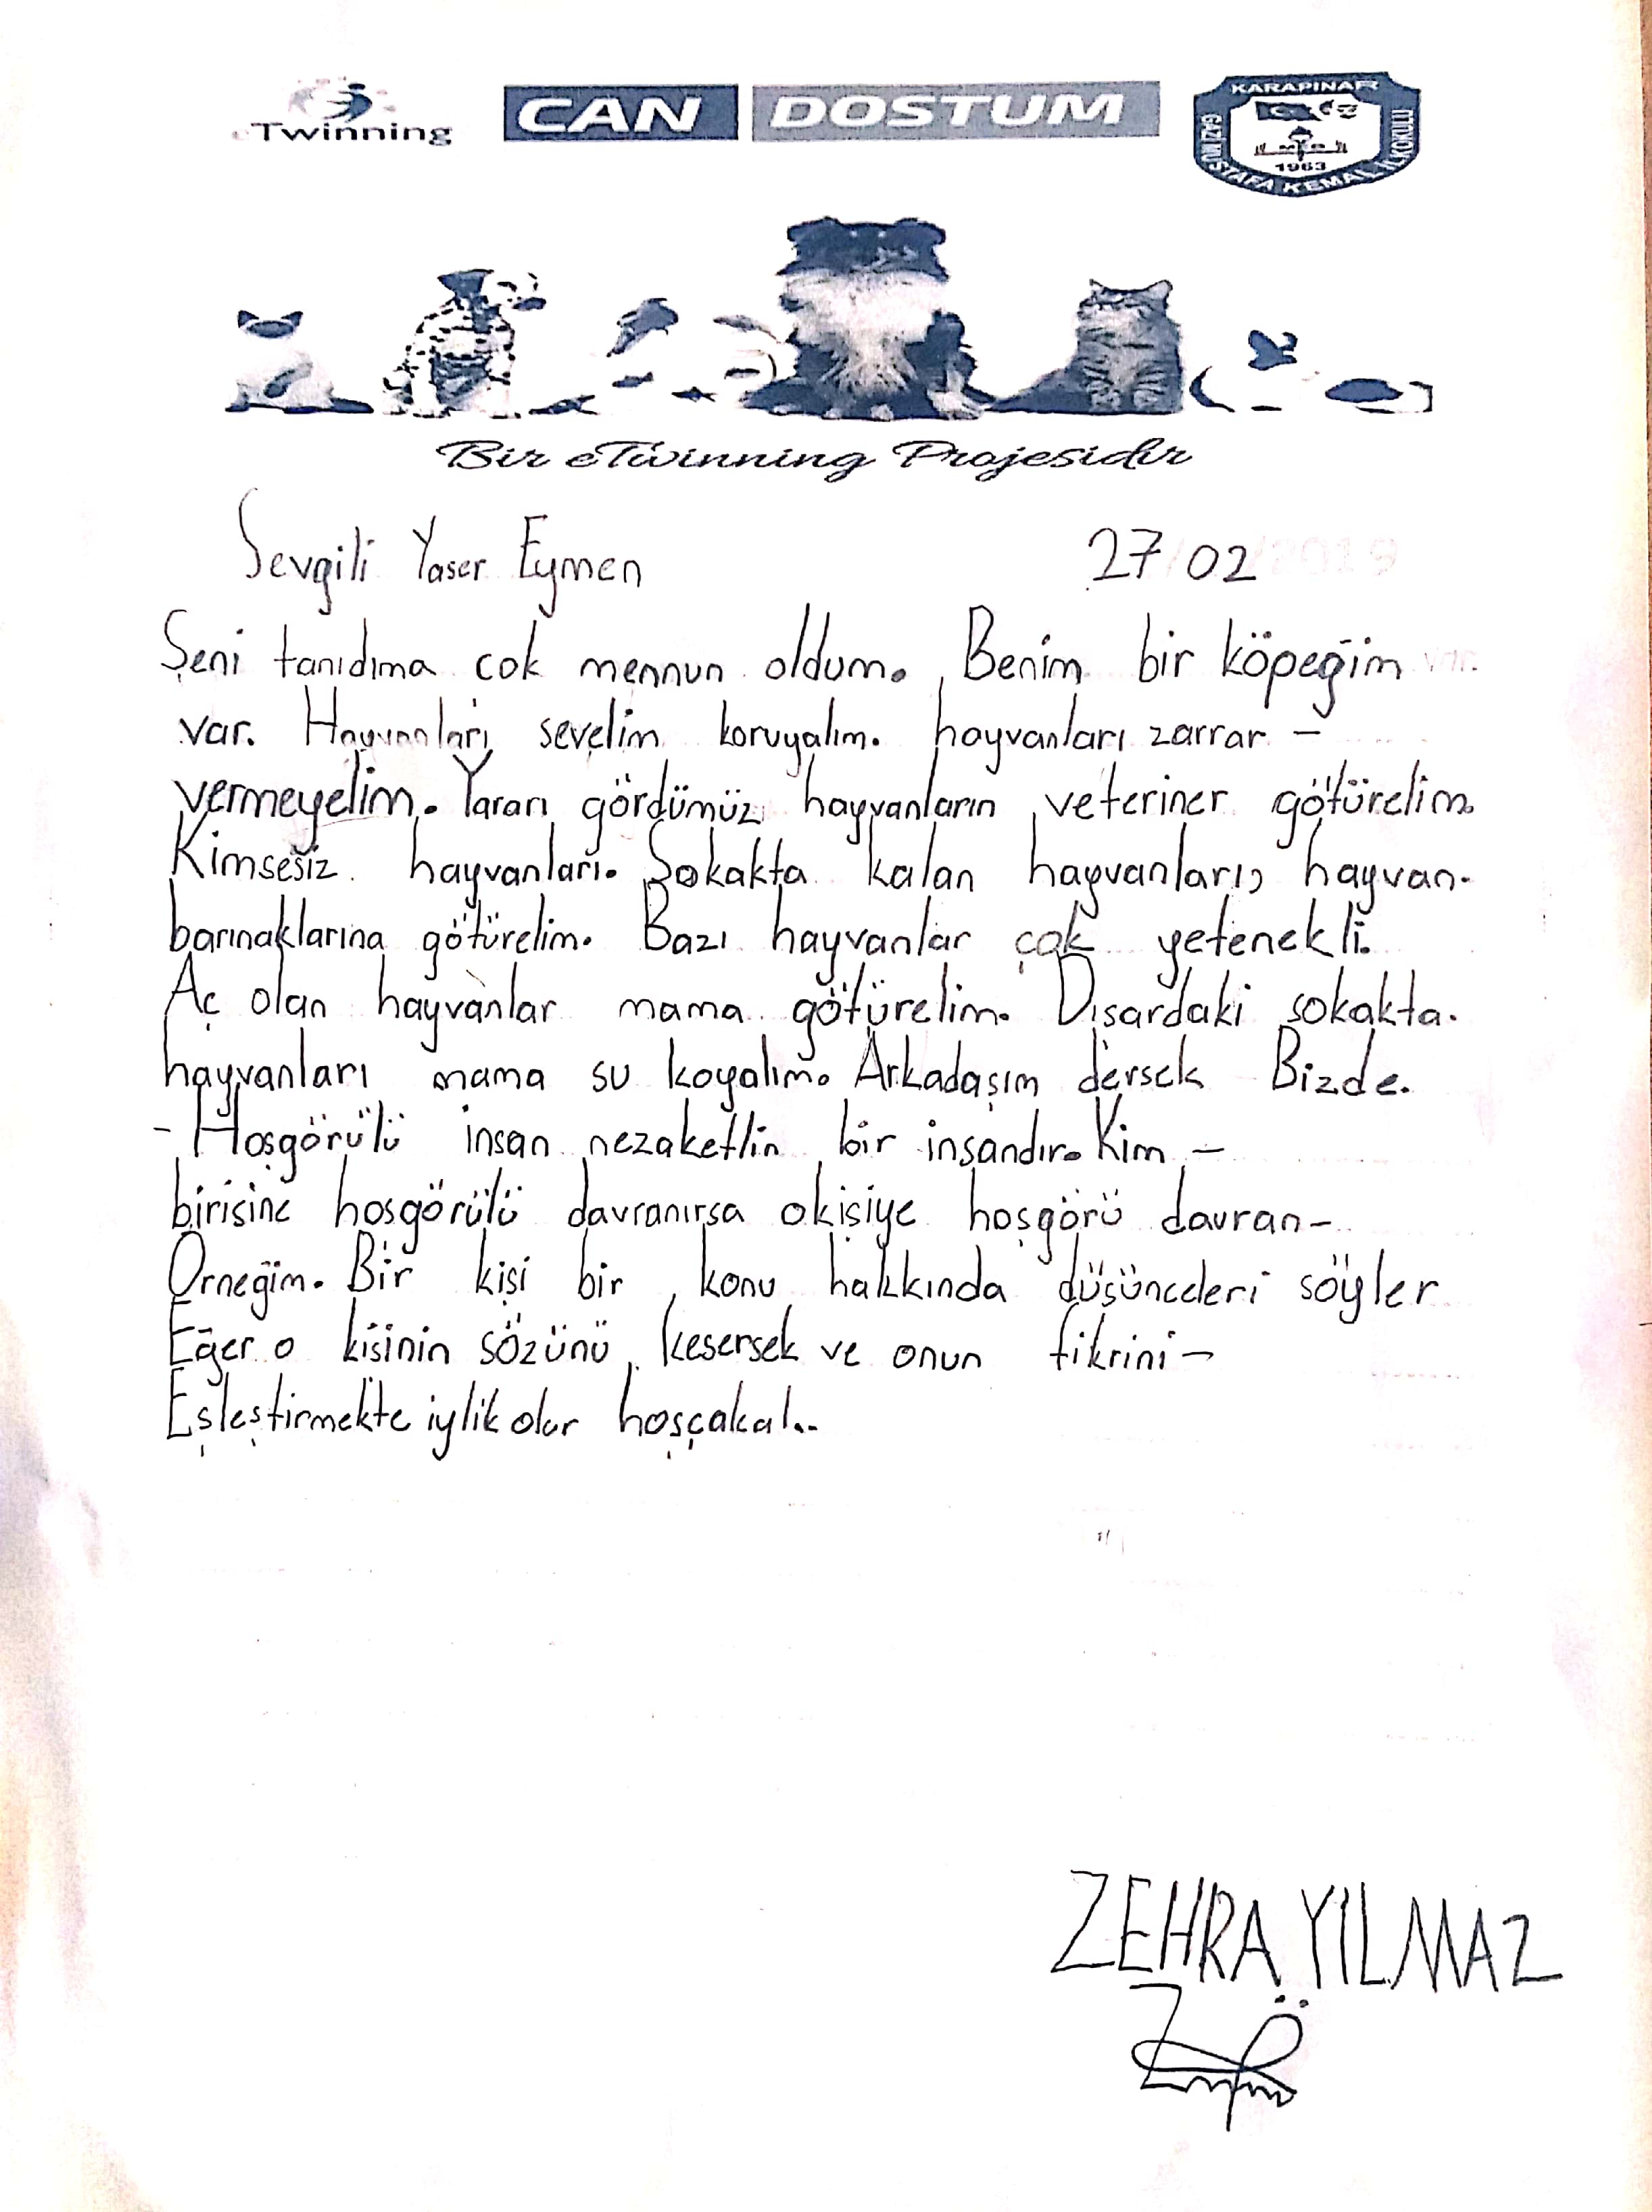 eTwinning CAN DOSTUM
KARAPINAR
GAZİ MUSTAFA KEMAL İLKOKULU
1963
Bir eTwinning Projesidir
Sevgili Yaser Eymen 27 02 /2019
Şeni tanıdıma cok mennun oldum. Benim bir köpeğim
var. Hayvanları sevelim koruyalım. hayvanları zarrar -
vermeyelim. Yararı gördümüz hayvanların veteriner götürelim.
Kimsesiz hayvanları. Sokakta kalan hayvanları, hayvan.
barınaklarına götürelim. Bazı hayvanlar çok yetenekli.
Aç olan hayvanlar mama götürelim. Dışardaki sokakta.
hayvanları mama su koyalım. Arkadaşım dersek Bizde.
- Hoşgörülü insan nezaketlin bir insandır. Kim -
birisine hosgörülü davranırsa okişiye hoşgörü davran-
Örneğim. Bir kişi bir konu hakkında düşünceleri söyler
Eğer o kisinin sözünü kesersek ve onun fikrini -
Eşleştirmekte iylik olur hoşçakal..
ZEHRA YILMAZ